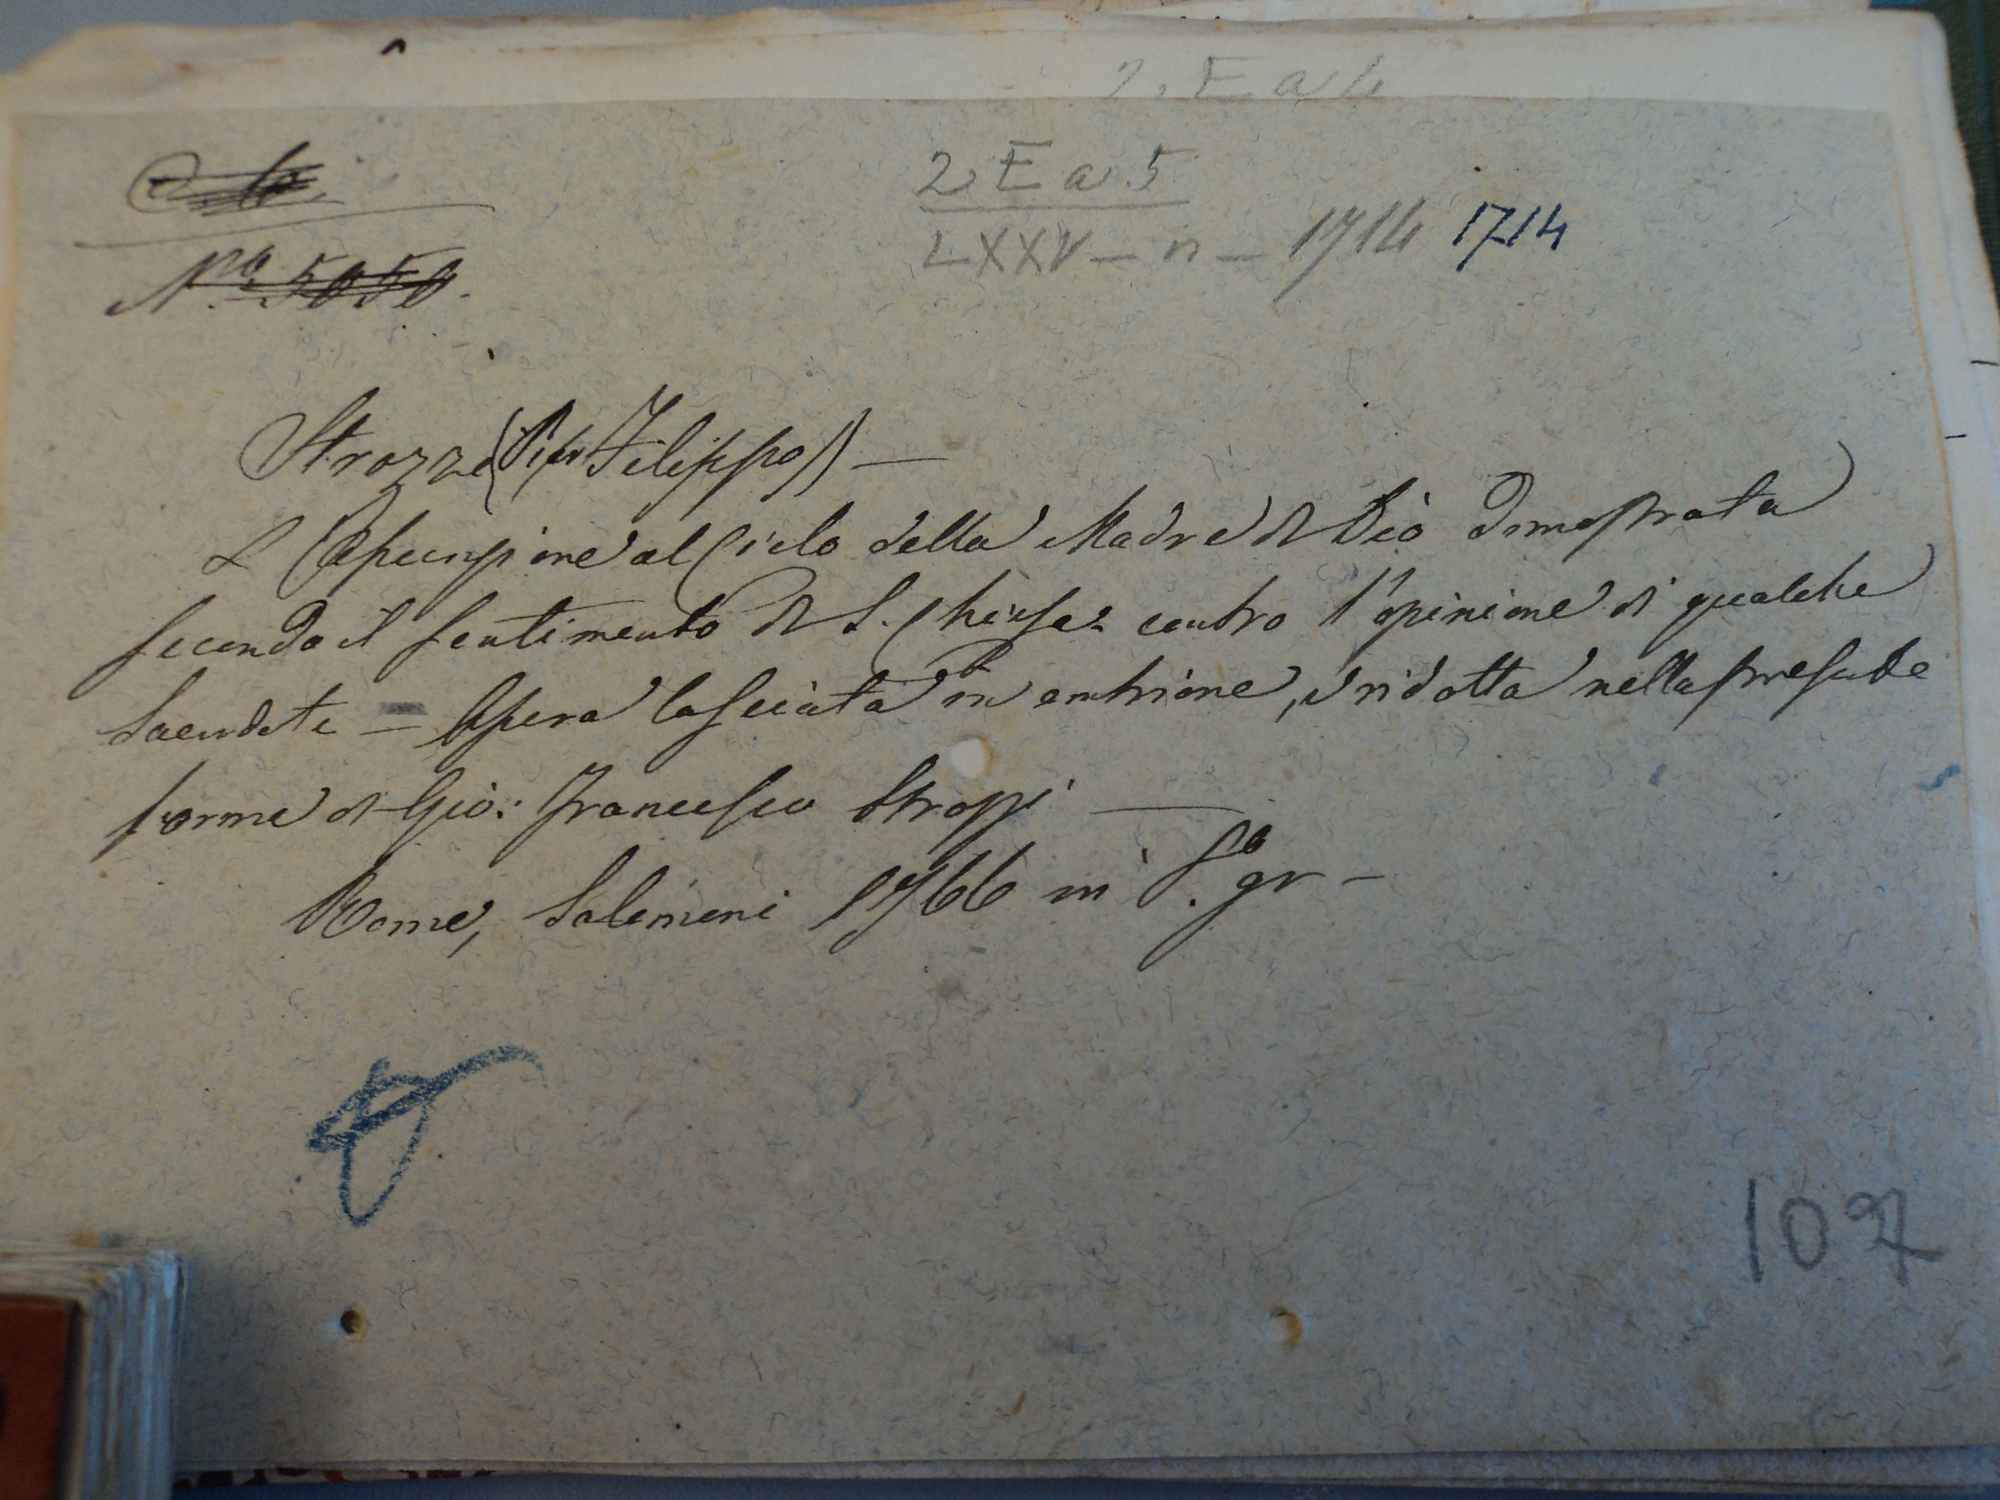 2. E a 4
2 E a 5
LXXV - n - 1714 1714
N.ro 5050.
Strozzi (Pier Filippo) —
L'Assunzione al Cielo della Madre di Dio dimostrata
secondo il sentimento di S. Chiesa contro l'opinione di qualche
Sacerdote — Opera lasciata in embrione, e ridotta nella presente
forma di Gio: Francesco Strozzi —
Rome, Salomoni 1766 in f.o gr —
1097